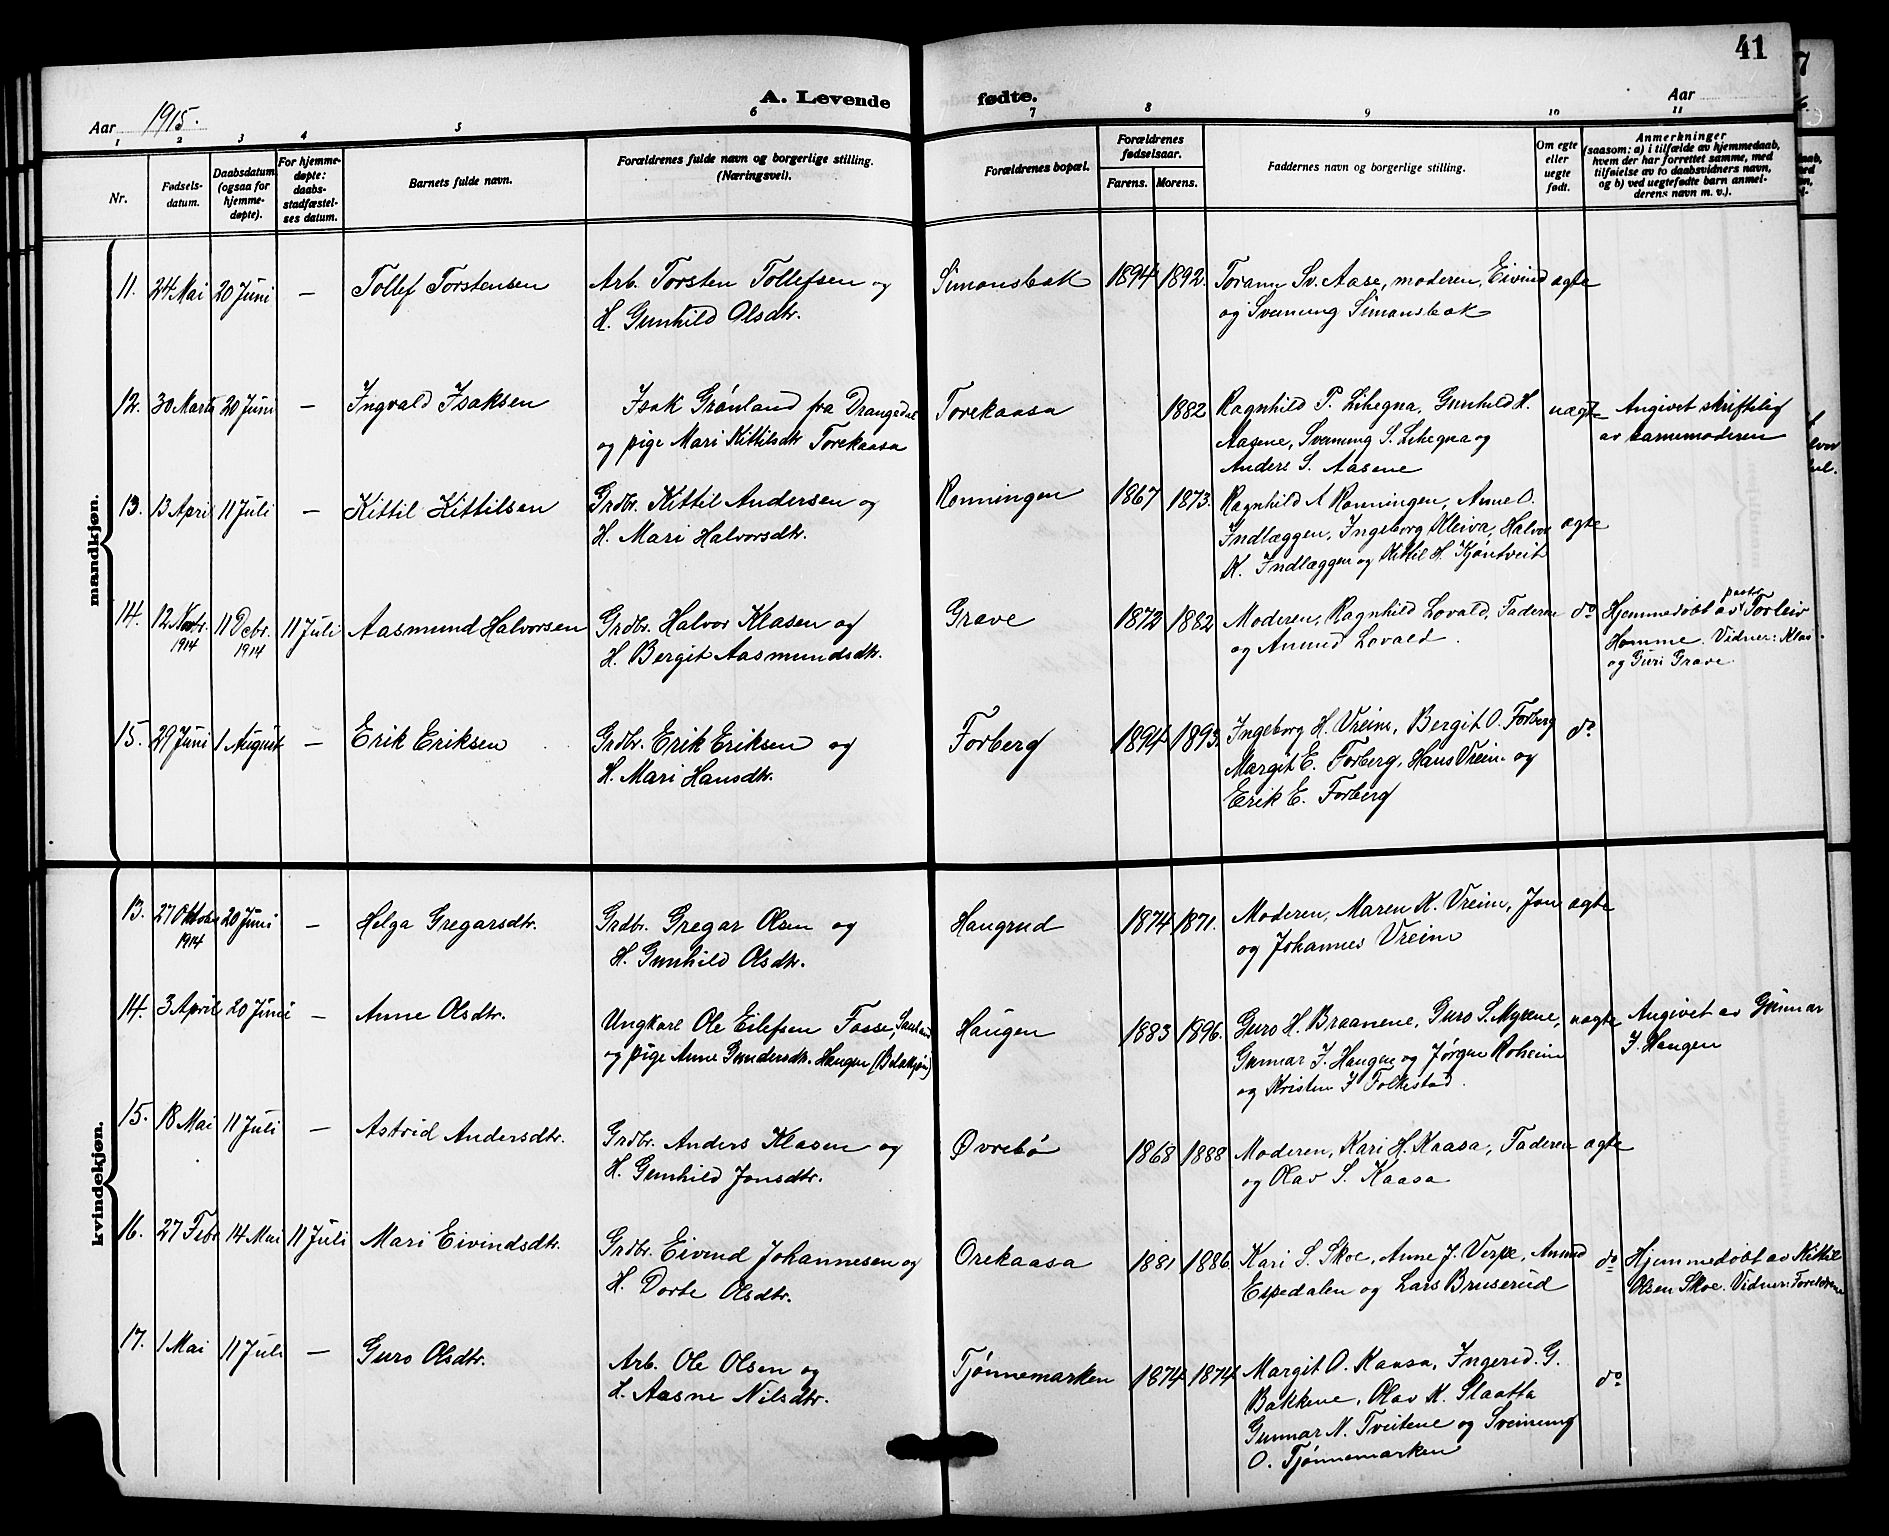 41
A. Levende fødte.
Aar 1915.
Aar
1 2 3 4 5 6 7 8 9 10 11
Nr.
Fødsels-
datum.
Daabsdatum
(ogsaa for
hjemme-
døpte).
For hjemme-
døpte:
daabs-
stadfæstel-
ses datum.
Barnets fulde navn.
Forældrenes fulde navn og borgerlige stilling.
(Næringsvei).
Forældrenes bopæl.
Forældrenes
fødselsaar.
Farens. Morens.
Faddernes navn og borgerlige stilling.
Om egte
eller
uegte
født.
Anmerkninger
(saasom: a) i tilfælde av hjemmedaab,
hvem der har forrettet samme, med
tilføielse av to daabsvidners navn,
og b) ved uegtefødte barn anmel-
derens navn m. v.).
mandkjøn.
11. 24 Mai 20 Juni — Tollef Torstensen Arb. Torsten Tollefsen og Simonsbak 1894 1892. Torann Sv. Aase, moderen, Eivind ægte
H. Gunhild Olsdtr. og Sveinung Simonsbak
12. 30 Marts 20 Juni — Ingvald Isaksen Isak Grønland fra Drangedal Torekaasa 1882 Ragnhild P. Lihegna, Gunhild H. uægte Angivet skriftelig
og pige Mari Kittilsdtr Torekaasa Aasene, Sveinung S. Lihegna og av barnemoderen
Anders S. Aasene
13. 13 April 11 Juli — Kittil Kittilsen Grdbr. Kittil Andersen og Rønningen 1867 1873. Ragnhild A Rønningen, Anne O. ægte
H. Mari Halvorsdtr. Indlæggen, Ingeborg Kleiva, Halvor
K. Indlæggen og Kittil H. Kjøntveit
14. 12 Novbr. 1914 11 Debr. 1914 11 Juli Aasmund Halvorsen Grdbr. Halvor Klasen og Grave 1872 1882 Moderen, Ragnhild Lovald, Faderen do Hjemmedøbt av pastor Torleiv
H. Bergit Aasmundsdtr. og Anund Lovald. Homme. Vidner: Klas
og Guri Grave.
15. 29 Juni 1 August — Erik Eriksen Grdbr. Erik Eriksen og Forberg 1894 1893. Ingeborg H. Vreim, Bergit O. Forberg do
H. Mari Hansdtr. Margit E. Forberg, Hans Vreim og
Erik E. Forberg
kvindekjøn.
13. 27 Oktober 1914 20 Juni — Helga Gregarsdtr. Grdbr. Gregar Olsen og Haugrud 1874 1871. Moderen, Maren K. Vreim, Jon ægte
H. Gunhild Olsdtr. og Johannes Vreim
14. 3 April 20 Juni — Anne Olsdtr. Ungkarl Ole Eilefsen Fosse, Sauland Haugen 1883 1896. Guro H. Braanene, Guro S. Myrene, uægte Angivet av Gunnar
og pige Anne Gundersdtr. Haugen Gunnar J. Haugen og Jørgen Roheim J. Haugen
og Kristen J Folkestad.
15. 18 Mai 11 Juli — Astrid Andersdtr. Grdbr. Anders Klasen og Øvrebø 1868 1888 Moderen, Kari H. Kaasa, Faderen ægte
H. Gunhild Jonsdtr. og Olav S. Kaasa
16. 27 Febr 14 Mai 11 Juli Mari Eivindsdtr. Grdbr. Eivind Johannesen og Orekaasa 1881 1886. Kari S. Skoe, Anne J. Verpe, Anund do Hjemmedøbt av Kittil
H. Dorte Olsdtr. Espedalen og Lars Bruserud Olsen Skoe. Vidner: Foreldrene
17. 1 Mai 11 Juli — Guro Olsdtr. Arb. Ole Olsen og Tjønnemarken 1874 1874 Margit O. Kaasa, Ingerid G. do
H. Aasne Nilsdtr. Bakkene, Olav K. Slaatta
Gunnar N. Tveitene og Sveinung
O. Tjønnemarken